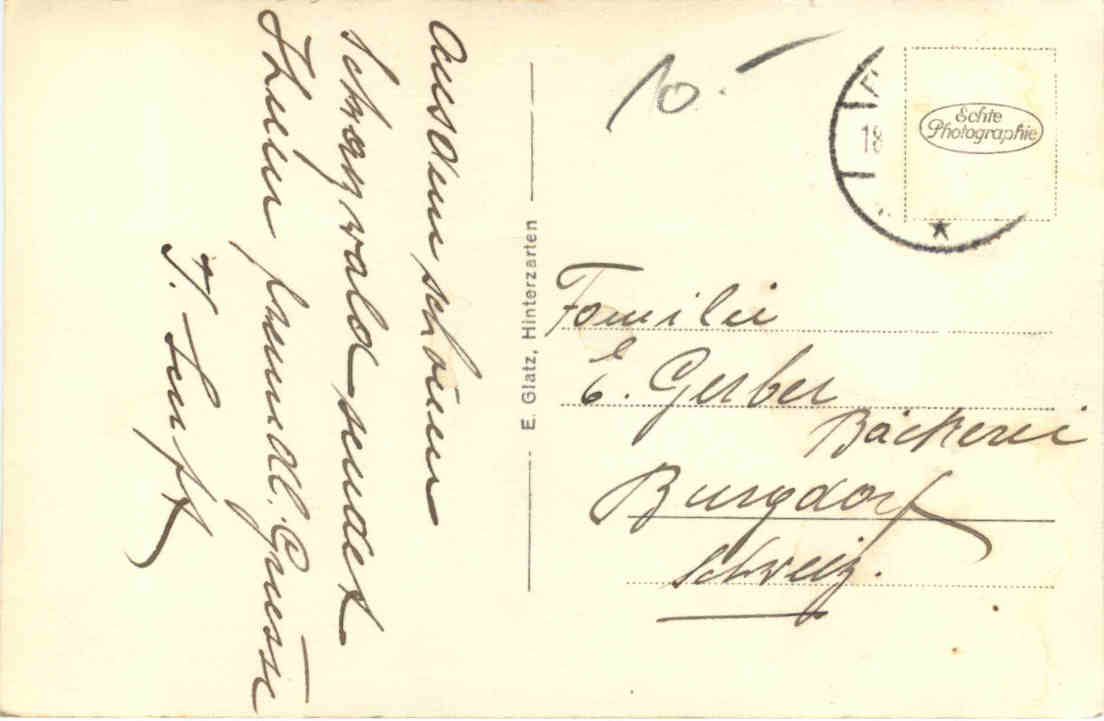 Aus dem schönen
Schwarzwald sendet
Ihnen freundl. Grüsse
E. Glatz, Hinterzarten
10.-
18
Echte
Photographie
Familie
E. Gerber
Bäckerei
Burgdorf
Schweiz.